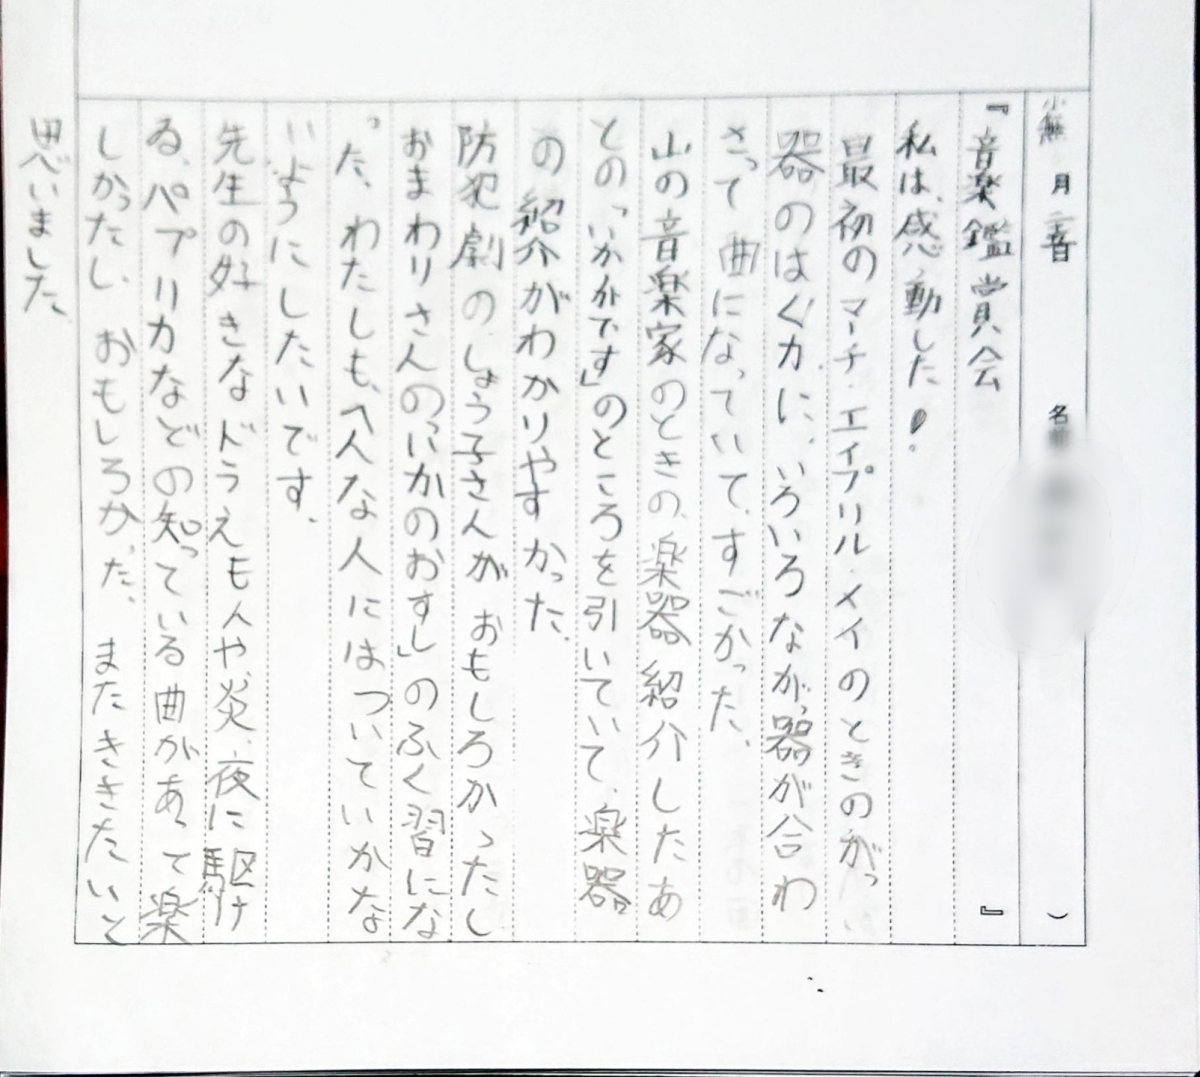 月 音 名前 )
『音楽鑑賞会 』
私は、感動した!
最初のマーチ・エイプリル・メイのときのがっ
器のはく力に、いろいろながっ器が合わ
さって曲になっていて、すごかった、
山の音楽家のときの、楽器紹介したあ
との、「いかがです」のところを引いていて、楽器
の紹介がわかりやすかった、
防犯劇の、しょう子さんが、おもしろかったし
おまわりさんの、「いかのおすし」のふく習にな
った、わたしも、へんな人にはついていかな
いようにしたいです、
先生の好きなドラえもんや、炎、夜に駆け
る、パプリカなどの知っている曲があって楽
しかったし、おもしろかった、またききたいと
思いました、